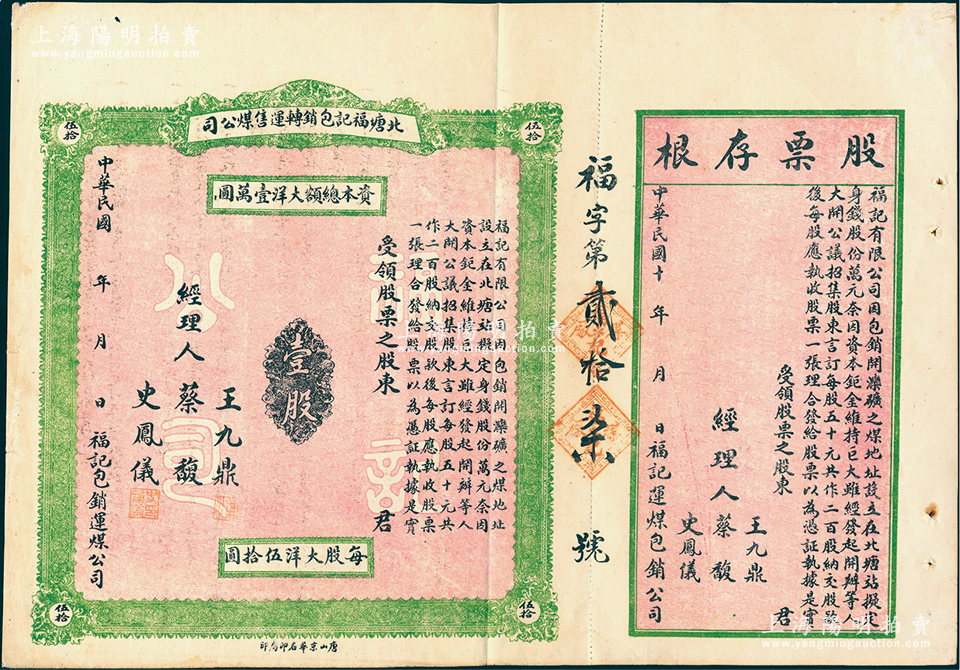 上海陽明拍賣
www.yangmingauction.com
股票存根
福記有限公司因包銷開灤礦之煤地址設立在北塘站擬定
身錢股份萬元奈因資本鉅金維持巨大雖經發起開辦等人
大開公議招集股東言訂每股五十元共作二百股納交股款
後每股應執收股票一張理合發給股票以為憑証執據是實
受領股票之股東 君
經理人
王九鼎
蔡馥
史鳳儀
中華民國十 年 月 日福記運煤包銷公司
福字第貳拾柒號
北塘福記包銷轉運售煤公司
伍拾
伍拾
資本總額大洋壹萬圓
福記有限公司因包銷開灤礦之煤地址
設立在北塘站擬定身錢股份萬元奈因
資本鉅金維持巨大雖經發起開辦等人
大開公議招集股東言訂每股五十元共
作二百股納交股款後每股應執收股票
一張理合發給股票以為憑証執據是實
受領股票之股東 君
壹股
經理人
王九鼎
蔡馥
史鳳儀
中華民國 年 月 日
福記包銷運煤公司
每股大洋伍拾圓
伍拾
伍拾
唐山京華石印局印
上海陽明拍賣
www.yangmingauction.com
上海陽明拍賣
www.yangmingauction.com